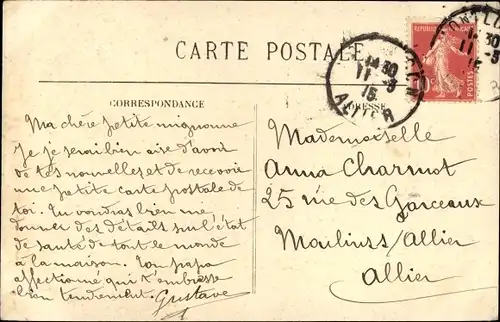 CARTE POSTALE
CORRESPONDANCE
ADRESSE
Ma chère petite mignonne
Je serai bien aise d'avoir
de tes nouvelles et de recevoir
une petite carte postale de
toi. Tu voudras bien me
donner des détails sur l'état
de santé de tout le monde
à la maison. Ton papa
affectionné qui t'embrasse
bien tendrement. Gustave
Mademoiselle
Anna Charmot
25 rue des Garceaux
Moulins s/Allier
Allier
11 30
11 - 3
15
ALLIER
10c
POSTES